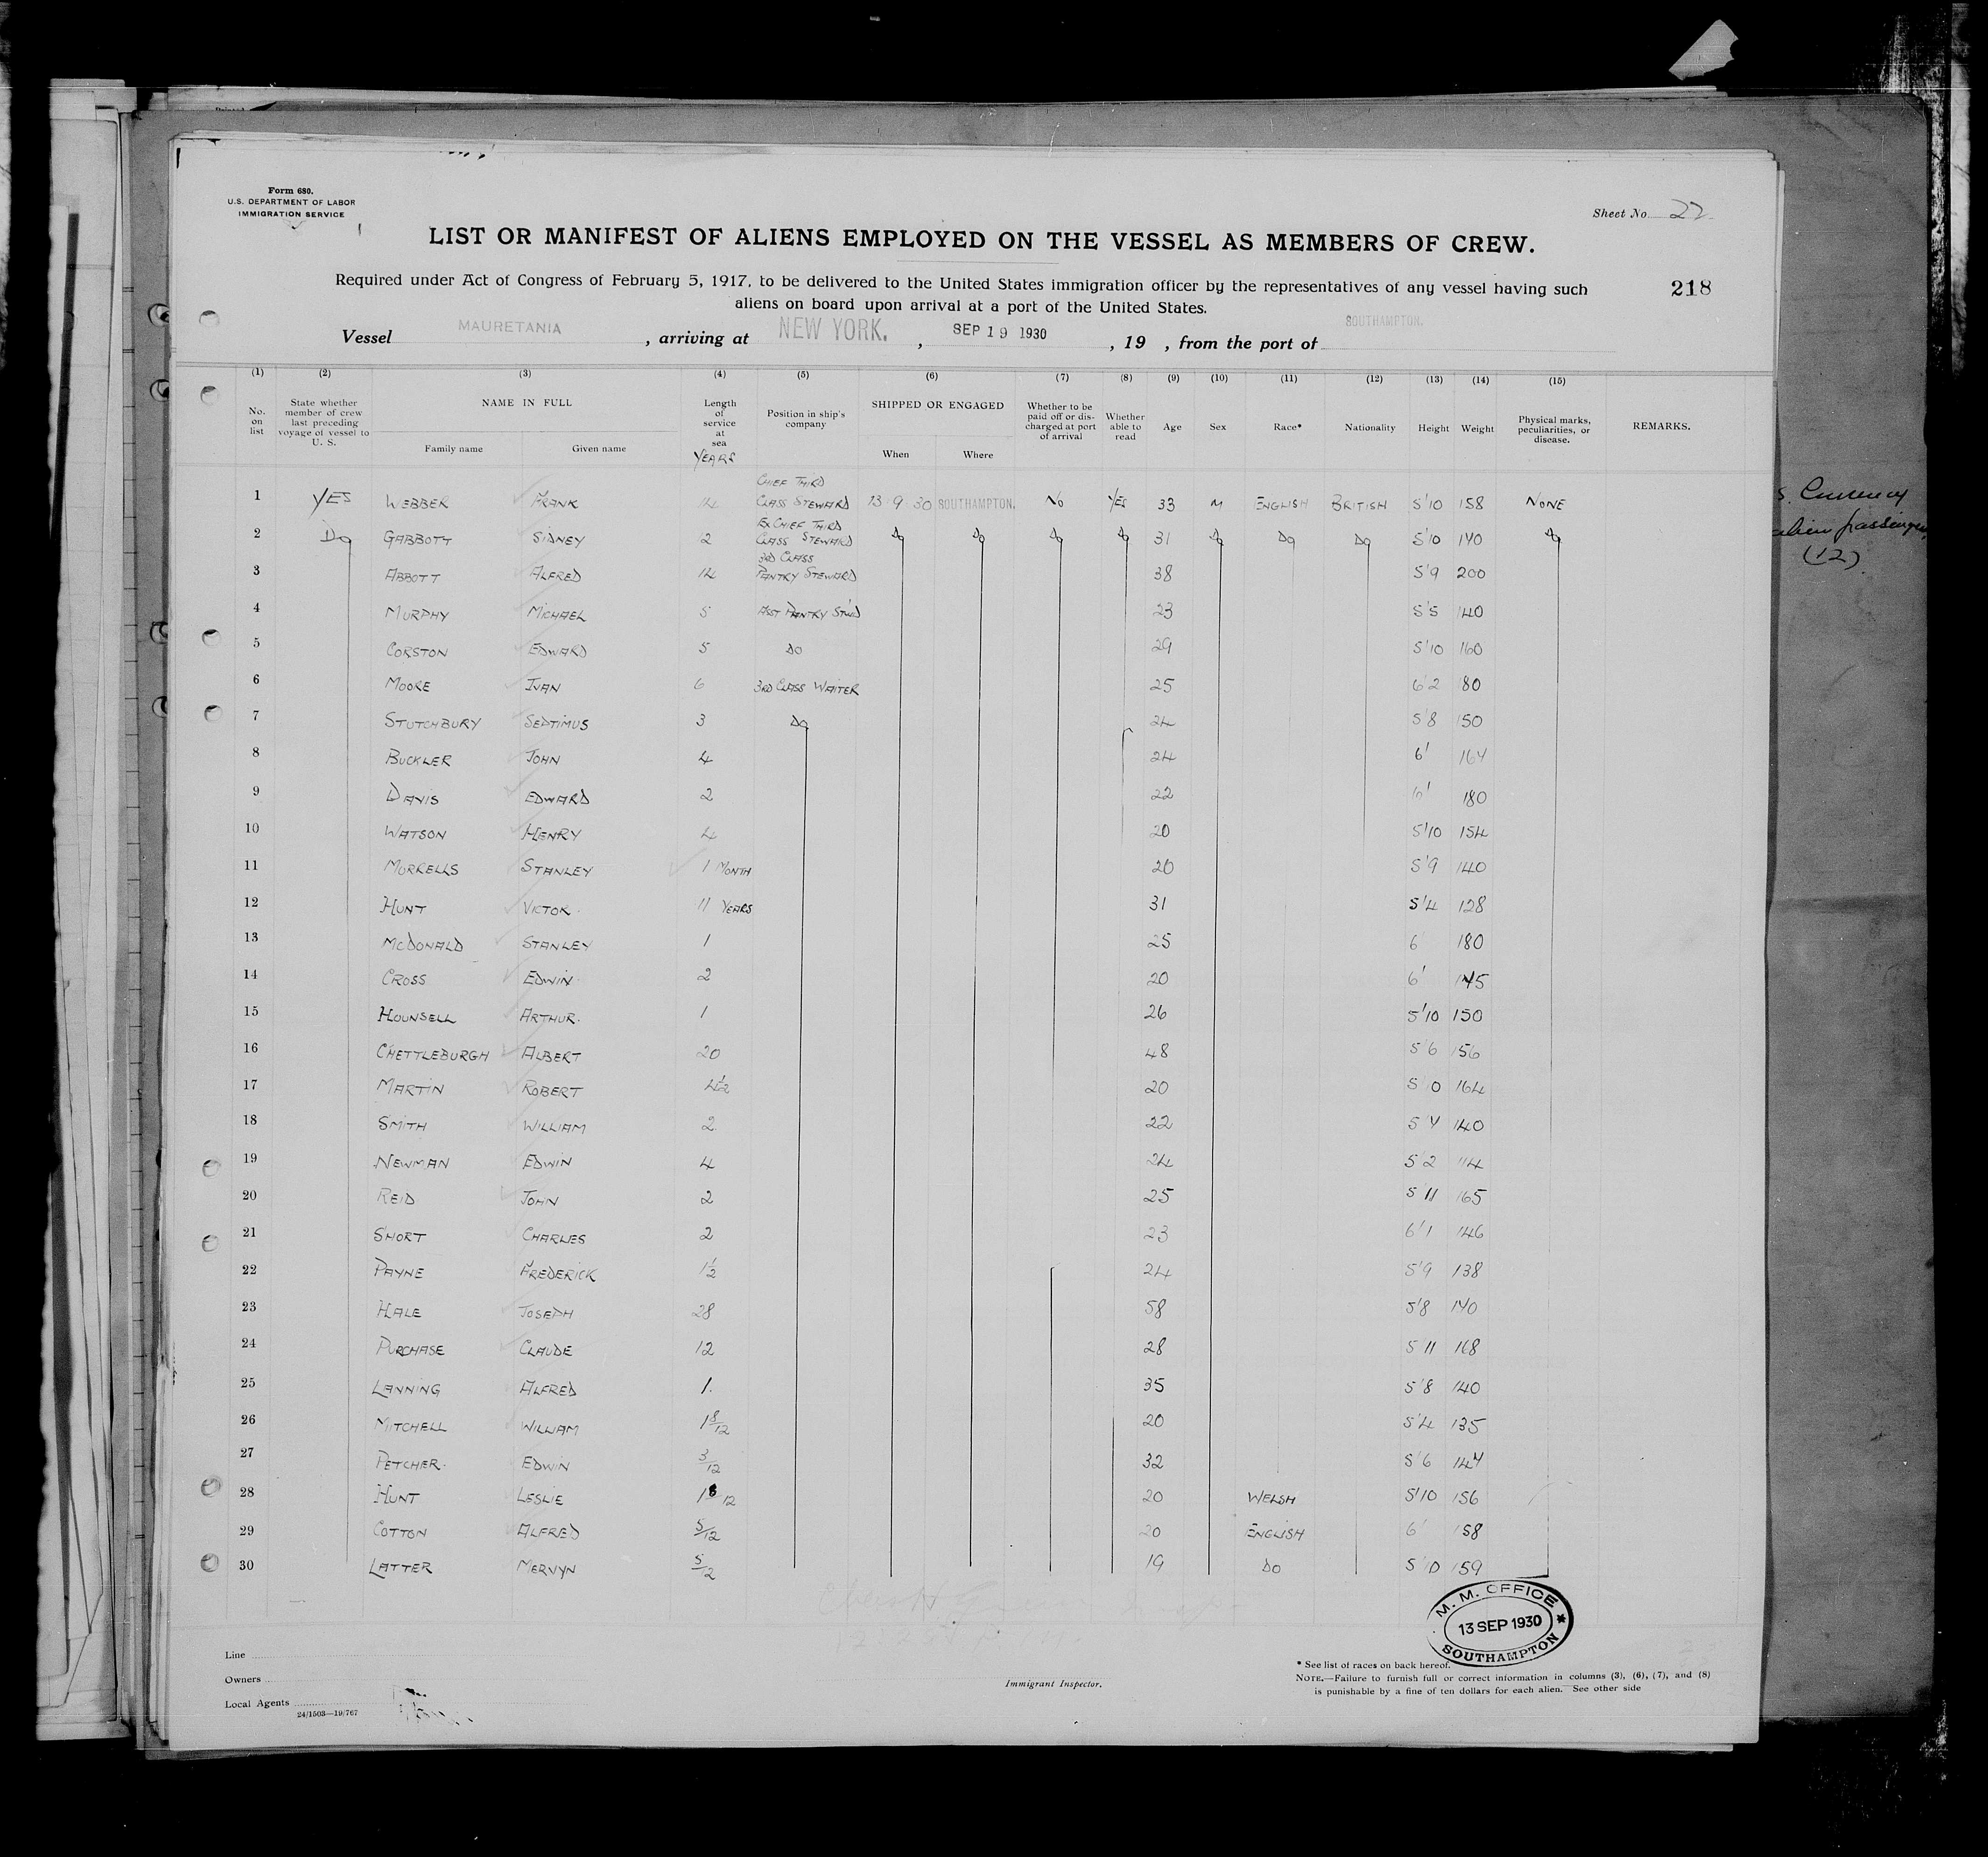 Form 680.
U.S. DEPARTMENT OF LABOR
IMMIGRATION SERVICE
Sheet No. 22
LIST OR MANIFEST OF ALIENS EMPLOYED ON THE VESSEL AS MEMBERS OF CREW.
Required under Act of Congress of February 5, 1917, to be delivered to the United States immigration officer by the representatives of any vessel having such
aliens on board upon arrival at a port of the United States.
218
Vessel MAURETANIA, arriving at NEW YORK, SEP 19 1930, 19 , from the port of SOUTHAMPTON.
(1) (2) (3) (4) (5) (6) (7) (8) (9) (10) (11) (12) (13) (14) (15)
No. on list State whether member of crew last preceding voyage of vessel to U. S. NAME IN FULL Family name Given name Length of service at sea YEARS Position in ship's company SHIPPED OR ENGAGED When Where Whether to be paid off or discharged at port of arrival Whether able to read Age Sex Race* Nationality Height Weight Physical marks, peculiarities, or disease. REMARKS.
1 YES WEBBER FRANK 14 CHIEF THIRD CLASS STEWARD 13 9 30 SOUTHAMPTON. NO YES 33 M ENGLISH BRITISH 5'10 158 NONE
2 Do GABBOTT SIDNEY 2 EX CHIEF THIRD CLASS STEWARD Do Do Do Do 31 Do Do Do 5'10 140 Do
3 ABBOTT ALFRED 14 3RD CLASS PANTRY STEWARD 38 5'9 200
4 MURPHY MICHAEL 5 ASST PANTRY STWD 23 5'5 140
5 CORSTON EDWARD 5 DO 29 5'10 160
6 MOORE IVAN 6 3RD CLASS WAITER 25 6'2 180
7 STUTCHBURY SEPTIMUS 3 Do 24 5'8 150
8 BUCKLER JOHN 4 24 6' 164
9 DAVIS EDWARD 2 22 180
10 WATSON HENRY 4 20 5'10 154
11 MORRELLS STANLEY 1 MONTH 20 5'9 140
12 HUNT VICTOR 11 YEARS 31 5'4 128
13 MCDONALD STANLEY 1 25 6 180
14 CROSS EDWIN 2 20 6' 145
15 HOUNSELL ARTHUR. 1 26 5'10 150
16 CHETTLEBURGH ALBERT 20 48 5'6 156
17 MARTIN ROBERT 4½ 20 5'10 164
18 SMITH WILLIAM 2 22 5'4 140
19 NEWMAN EDWIN 4 24 5'2 114
20 REID JOHN 2 25 5'11 165
21 SHORT CHARLES 2 23 6'1 146
22 PAYNE FREDERICK 1½ 24 5'9 138
23 HALE JOSEPH 28 58 5'8 140
24 PURCHASE CLAUDE 12 28 5'11 168
25 LANNING ALFRED 1. 35 5'8 140
26 MITCHELL WILLIAM 1 8/12 20 5'4 135
27 PETCHER. EDWIN 3/12 32 5'6 144
28 HUNT LESLIE 1 8/12 20 WELSH 5'10 156
29 COTTON ALFRED 5/12 20 ENGLISH 6' 158
30 LATTER MERVYN 5/12 19 DO 5'10 159
M. M. OFFICE
13 SEP 1930
SOUTHAMPTON
Line
Owners
Local Agents
24/1503—19/767
Immigrant Inspector.
* See list of races on back hereof.
NOTE.—Failure to furnish full or correct information in columns (3), (6), (7), and (8)
is punishable by a fine of ten dollars for each alien. See other side
Currency
alien passenger
(12)